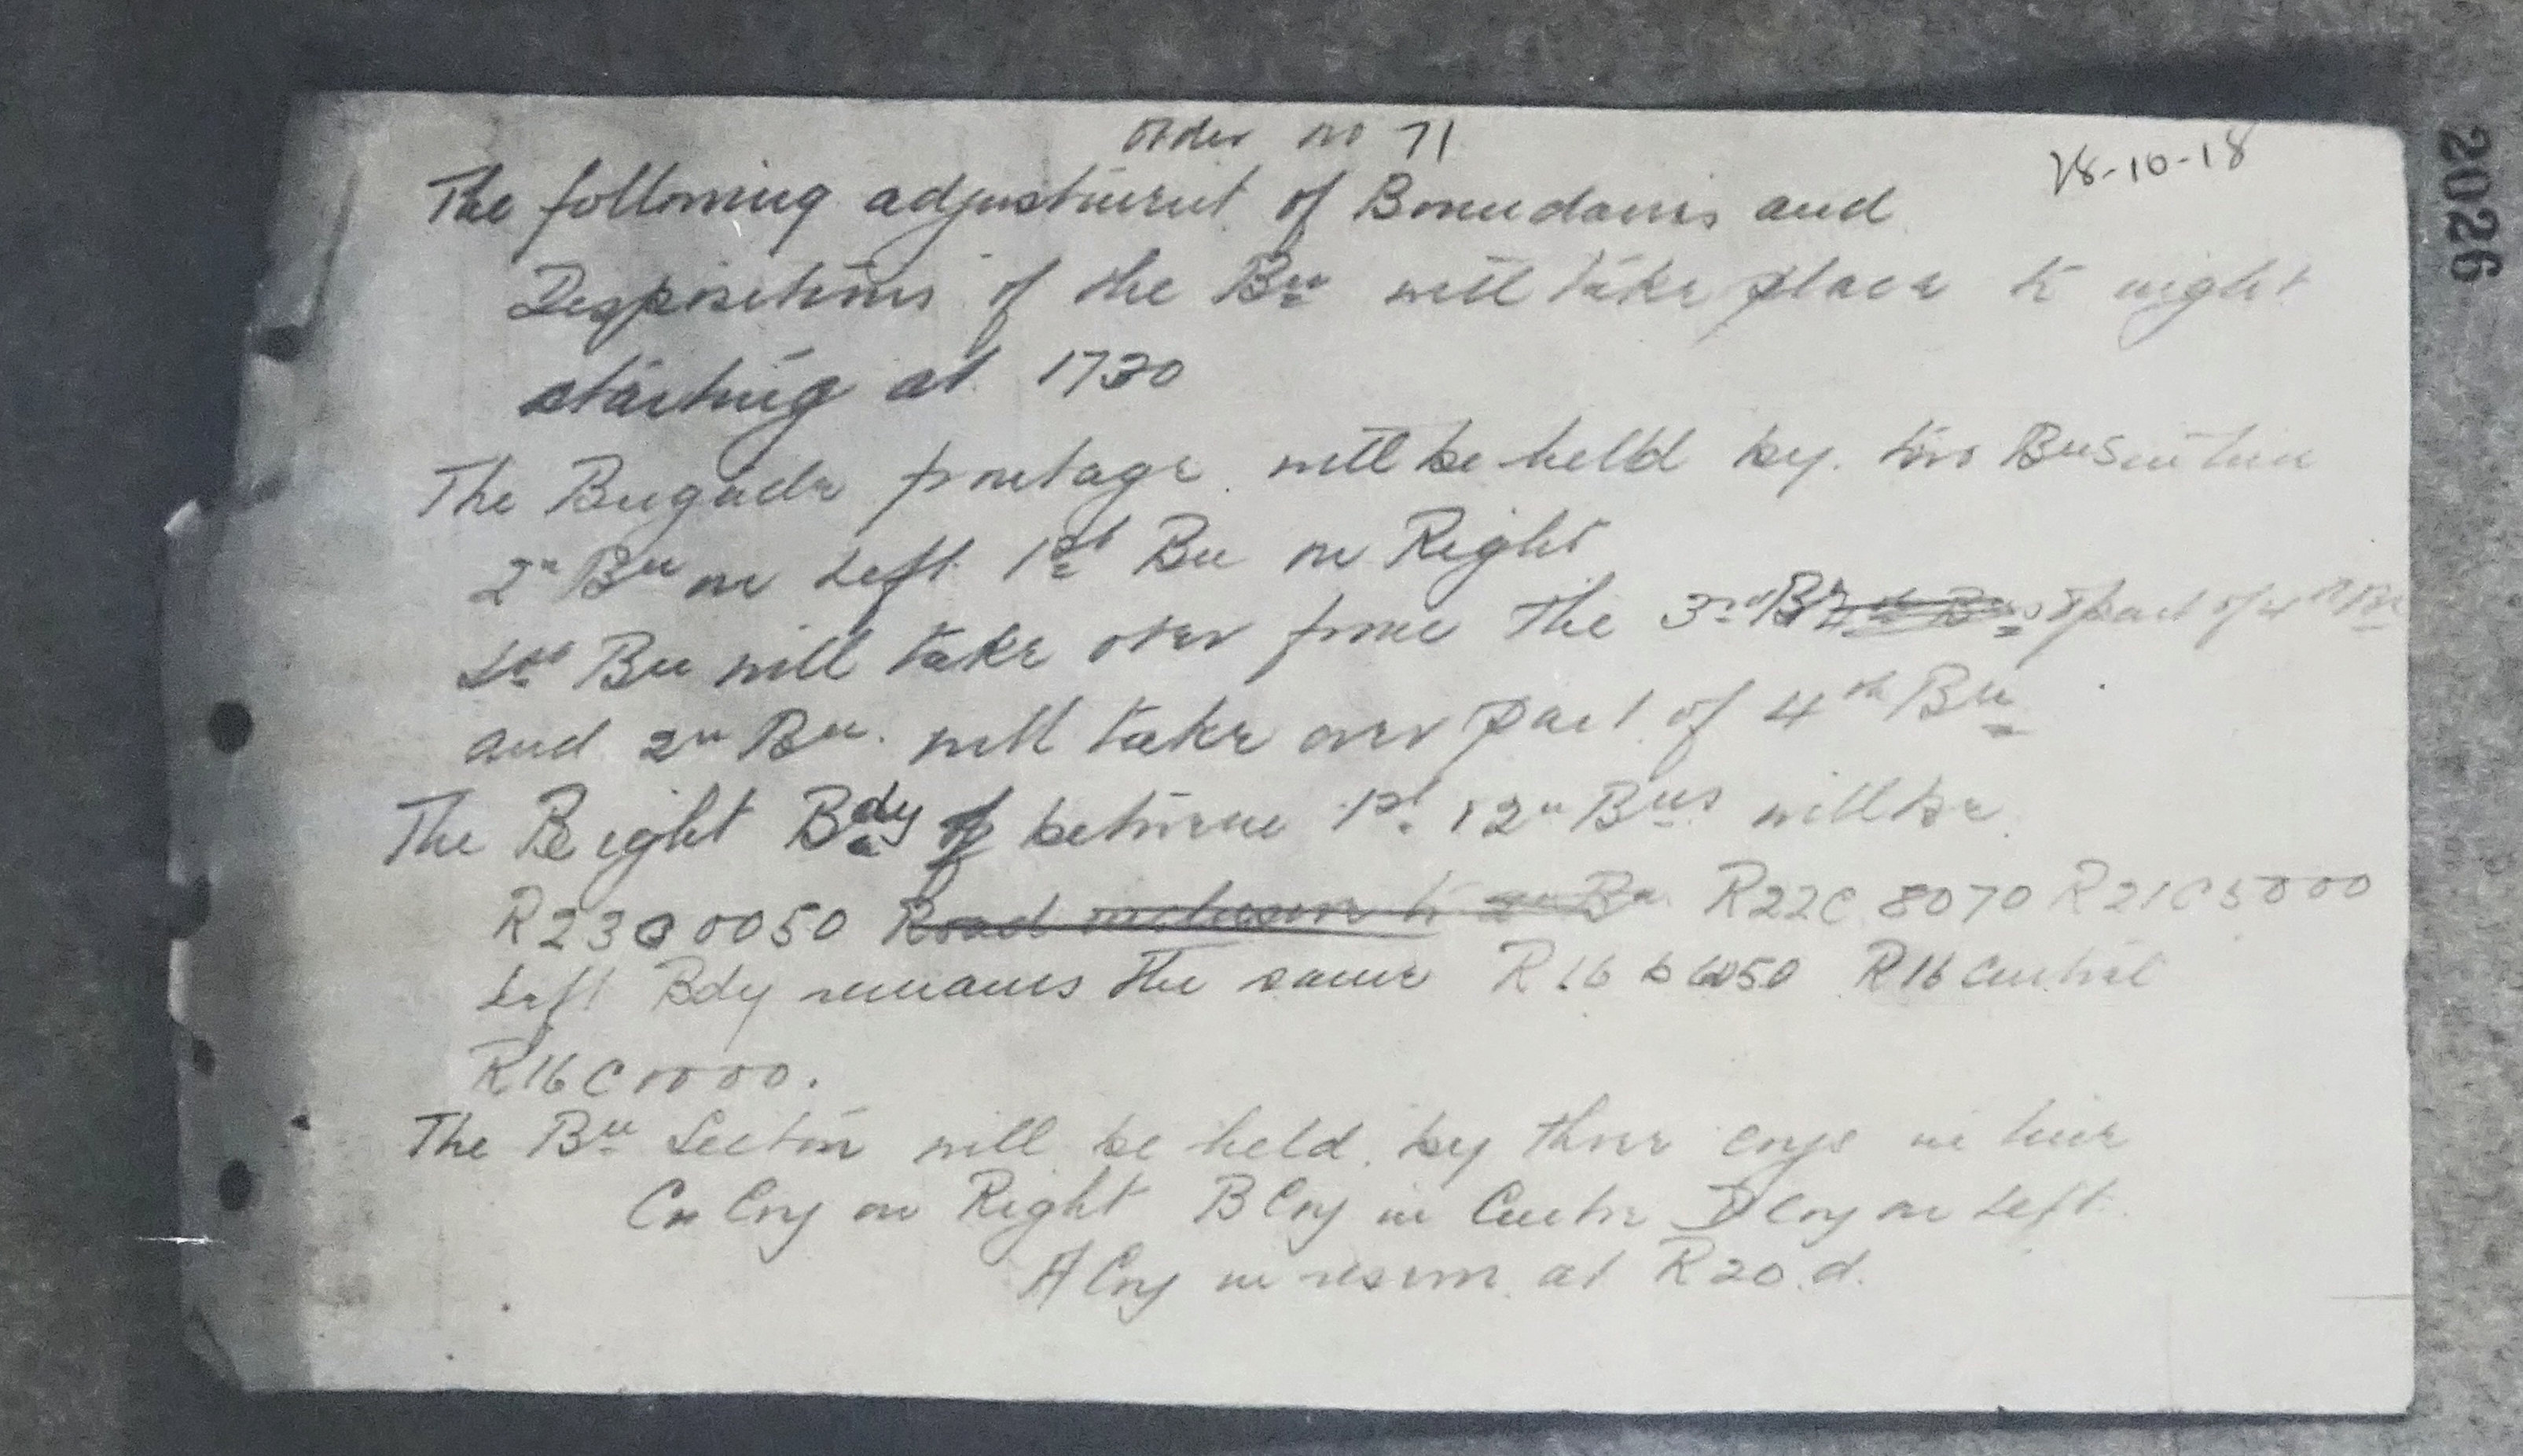 Order no 71
28-10-18
The following adjustment of Boundaries and
Dispositions of the Bn will take place to night
starting at 1730
The Brigade frontage will be held by two Bns in line
2n Bn on Left 1st Bn on Right
1st Bn will take over from the 3rd Bn & part of 4th Bn
and 2n Bn. will take over part of 4th Bn
The Right Bdy between 1st & 2n Bns will be
R23c0050 Road inclusive to 2n Bn R22C 8070 R21C5000
Left Bdy remains the same R16 b 6050 R16 Central
R16C0000.
The Bn Section will be held by three coys in line
C Coy on Right B Coy in Centre D Coy on Left
A Coy in reserve at R20.d.
2026